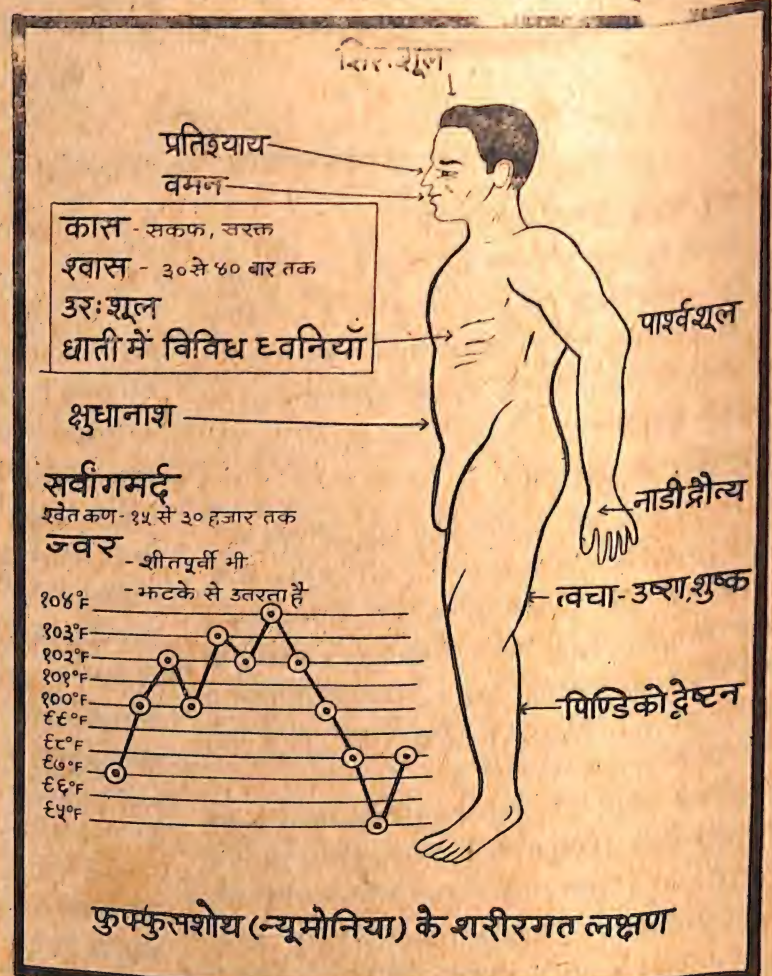 शिरःशूल
प्रतिश्याय
वमन
कास - सकफ, सरक्त
श्वास - ३० से ४० बार तक
उरःशूल
धाती में विविध ध्वनियाँ
पार्श्वशूल
क्षुधानाश
सर्वांगमर्द
श्वेत कण - १५ से ३० हजार तक
नाडी द्रौत्य
ज्वर - शीतपूर्वी भी
- झटके से उतरता है
त्वचा - उष्ण, शुष्क
१०४°F
१०३°F
१०२°F
१०१°F
१००°F
९९°F
९८°F
९७°F
९६°F
९५°F
पिण्डिकोद्वेष्टन
फुफ्फुसशोथ (न्यूमोनिया) के शरीरगत लक्षण